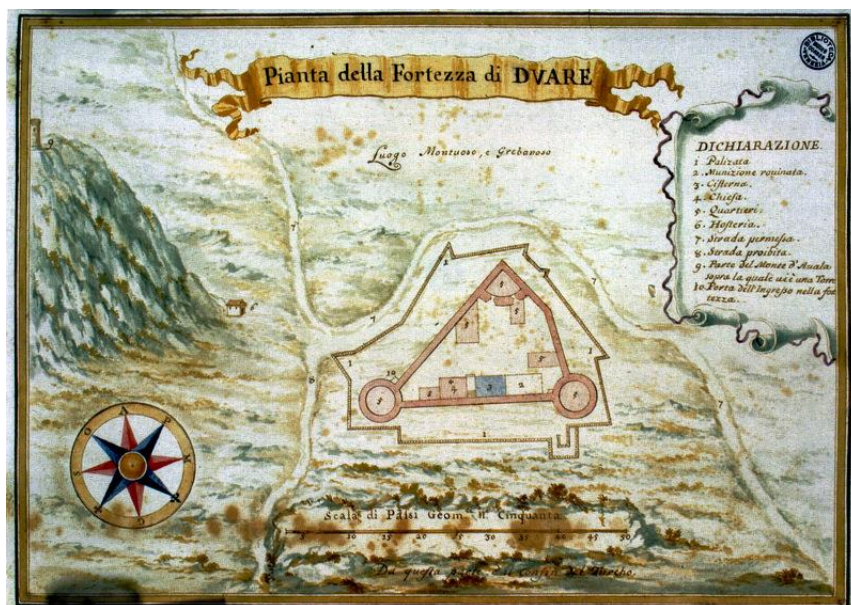 Pianta della Fortezza di DVARE
Luogo Montuoso, e Grebanoso
DICHIARAZIONE.
1 Palizata
2. Munizione rouinata.
3. Cisterna.
4. Chiesa.
5. Quartieri.
6. Hosteria.
7. Strada permessa.
8. Strada proibita.
9. Parte del Monte d'Auala
sopra la quale ui è una Torre
10. Porta dell'Ingresso nella for
tezza.
Scala di Passi Geom. n. Cinquanta
5 10 15 20 25 30 35 40 45 50
Da questa parte il Confin del Turcho.